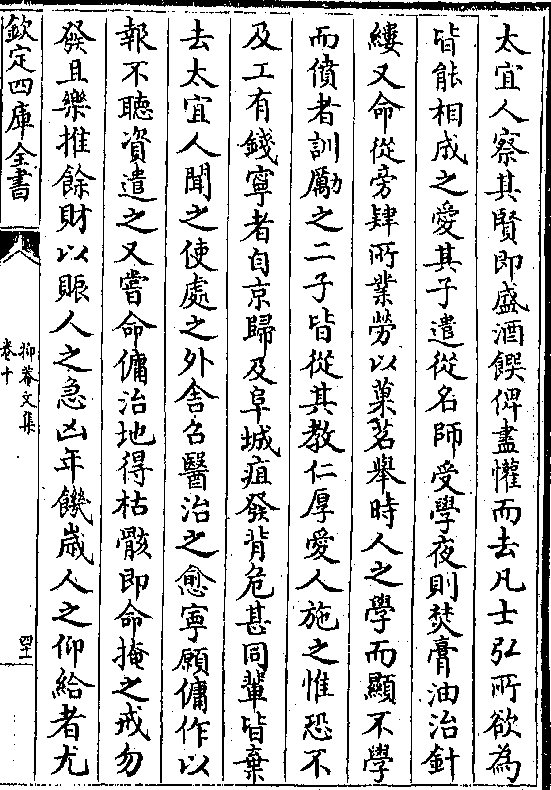 太宜人察其賢即盛酒饌俾盡懽而去凡士弘所欲為
皆能相成之愛其子遣從名師受學夜則焚膏油治針
縷又命從旁肄所業勞以菓茗舉時人之學而顯不學
而僨者訓勵之二子皆從其教仁厚愛人施之惟恐不
及工有錢寧者自京歸及阜城疽發背危甚同輩皆棄
去太宜人聞之使處之外舍召醫治之愈寧願傭作以
報不聽資遣之又嘗命傭治地得枯骸即命掩之戒勿
發且樂推餘財以賑人之急凶年饑歲人之仰給者尤
欽定四庫全書
抑菴文集
卷十